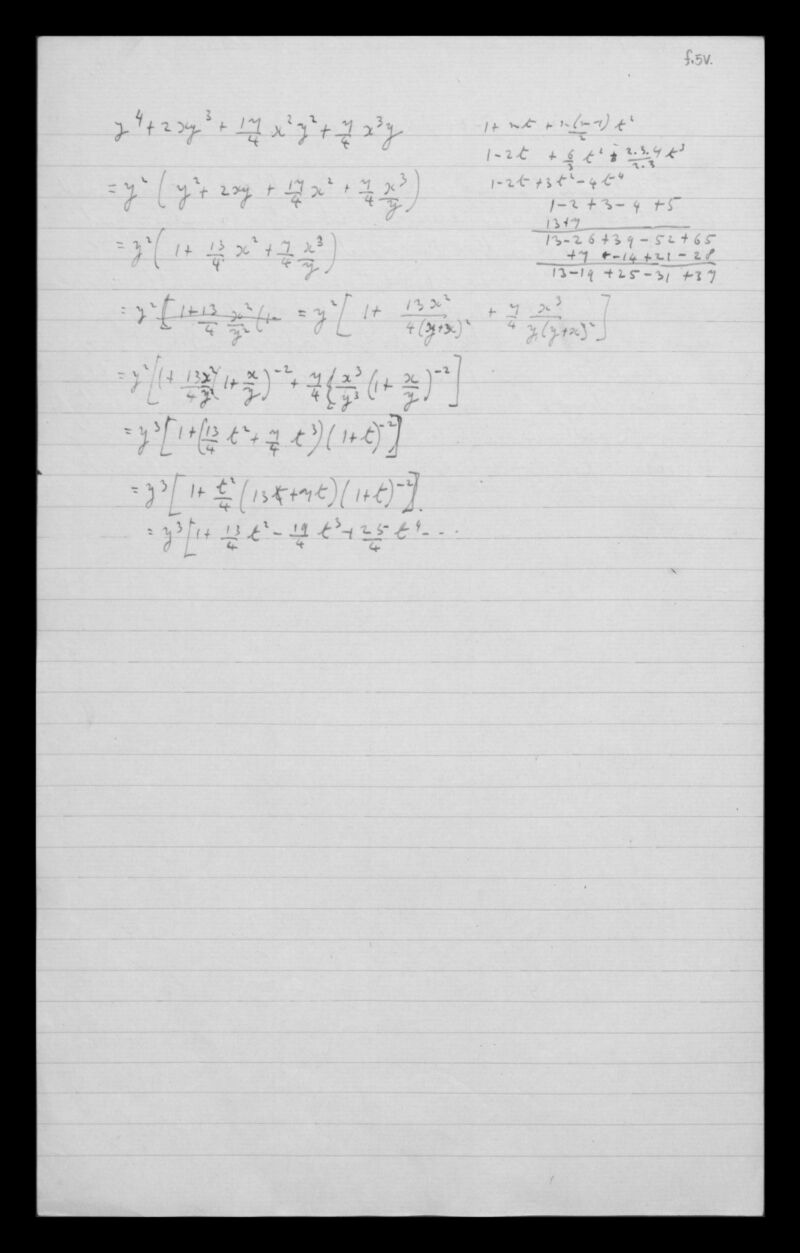 f.5v.
y⁴ + 2xy³ + 17/4 x²y² + 7/4 x³y
= y² ( y² + 2xy + 17/4 x² + 7/4 x³/y )
= y² ( 1 + 13/4 x² + 7/4 x³/y )
= y² [ 1+13/4 x²/y² (1+ = y² [ 1 + 13x²/4(y+x)² + 7/4 x³/y(y+x)² ]
= y² [ 1 + 13x²/4y² (1 + x/y)⁻² + 7/4 { x³/y³ (1 + x/y)⁻² ]
= y³ [ 1 + ( 13/4 t² + 7/4 t³ ) ( 1+t )⁻² ]
= y³ [ 1 + t²/4 ( 13 + 7t ) ( 1+t )⁻² ].
= y³ [ 1 + 13/4 t² - 19/4 t³ + 25/4 t⁴ - ...
1 + nt + n(n-1)/2 t²
1-2t + 6/3 t² + 2.3.4/2.3 t³
1-2t + 3t² - 4t⁴
1-2+3-4+5
13+7
13-26+39-52+65
+7 -14+21-28
13-19+25-31+37